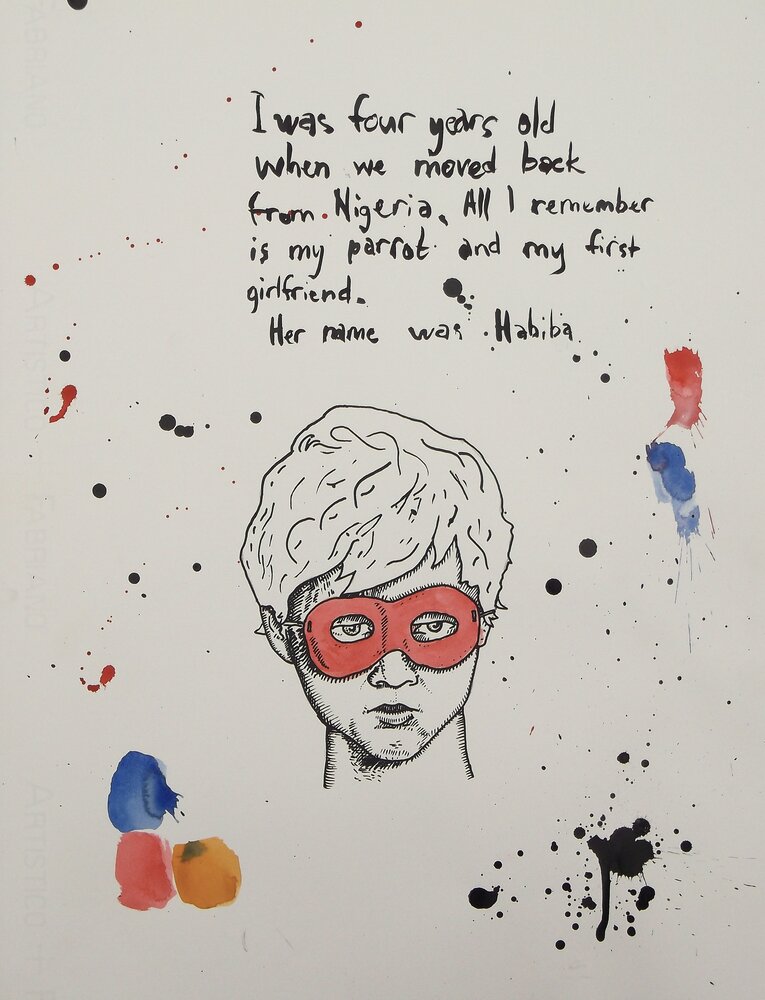 I was four years old
when we moved back
from Nigeria. All I remember
is my parrot and my first
girlfriend.
Her name was Habiba
FABRIANO
ARTISTICO
FABRIANO
ARTISTICO